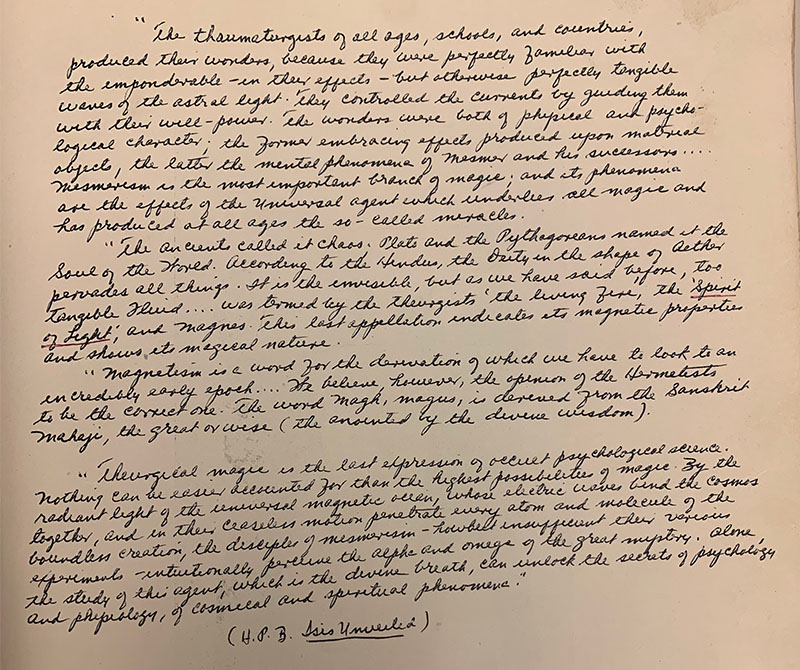 "The thaumaturgists of all ages, schools, and countries,
produced their wonders, because they were perfectly familiar with
the imponderable - in their effects - but otherwise perfectly tangible
waves of the astral light. They controlled the currents by guiding them
with their will-power. The wonders were both of physical and psycho-
logical character; the former embracing effects produced upon material
objects, the latter the mental phenomena of Mesmer and his successors....
Mesmerism is the most important branch of magic; and its phenomena
are the effects of the Universal agent which underlies all magic and
has produced at all ages the so-called miracles.
"The ancients called it Chaos; Plato and the Pythagoreans named it the
Soul of the World. According to the Hindus, the Deity in the shape of Aether
pervades all things. It is the invisible, but as we have said before, too
tangible Fluid.... was termed by the theurgists 'the living fire, the 'Spirit
of Light', and Magnes. This last appellation indicates its magnetic properties
and shows its magical nature.
"Magnetism is a word for the derivation of which we have to look to an
incredibly early epoch.... We believe, however, the opinion of the Hermetists
to be the correct one. The word Magh, magus, is derived from the Sanskrit
Mahaji, the great or wise (the anointed by the divine wisdom).
"Theurgical magic is the last expression of occult psychological science.
Nothing can be easier accounted for than the highest possibilities of magic. By the
radiant light of the universal magnetic ocean, whose electric waves bind the cosmos
together, and in their ceaseless motion penetrate every atom and molecule of the
boundless creation, the disciples of mesmerism - howbeit insufficient their various
experiments - intuitionally perceive the alpha and omega of the great mystery. Alone,
the study of this agent, which is the divine breath, can unlock the secrets of psychology
and physiology, of cosmical and spiritual phenomena."
(H. P. B. Isis Unveiled)